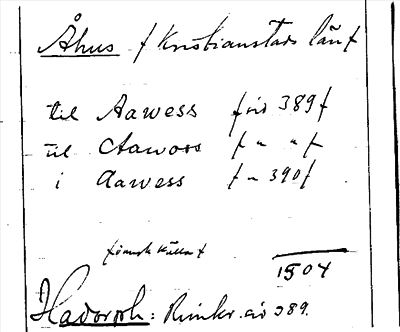 Åhus / Kristianstads län /
til Aawess / sid 389 /
til Aawoss / " " /
i Aawess / " 390 /
/ dansk källa /
1504
Hadorph: Rimkr. sid 389.